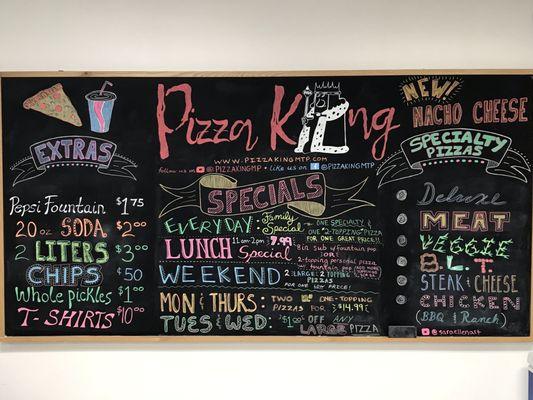 EXTRAS
Pepsi Fountain $1.75
20oz SODA $2.00
2 LITERS $3.00
CHIPS $.50
Whole pickles $1.00
T-SHIRTS $10.00
Pizza King
WWW.PIZZAKINGMP.COM
follow us @PIZZAKINGMP • like us on @PIZZAKINGMTP
SPECIALS
EVERYDAY • Family Special • ONE SPECIALTY &
ONE 2-TOPPING PIZZA
FOR ONE GREAT PRICE!!
LUNCH Special 11am-2pm $7.99
8in sub w/ fountain pop
(or)
2-topping personal pizza
w/ fountain pop
WEEKEND 2 LARGE 2 TOPPING
PIZZAS
FOR ONE LOW PRICE!
MON & THURS: TWO ONE-TOPPING
PIZZAS FOR $14.99
TUES & WED: $1.00 OFF ANY
LARGE PIZZA
NEW
NACHO CHEESE
SPECIALTY
PIZZAS
Deluxe
MEAT
VEGGIE
B.L.T.
STEAK & CHEESE
CHICKEN
(BBQ & Ranch)
@saraellenart